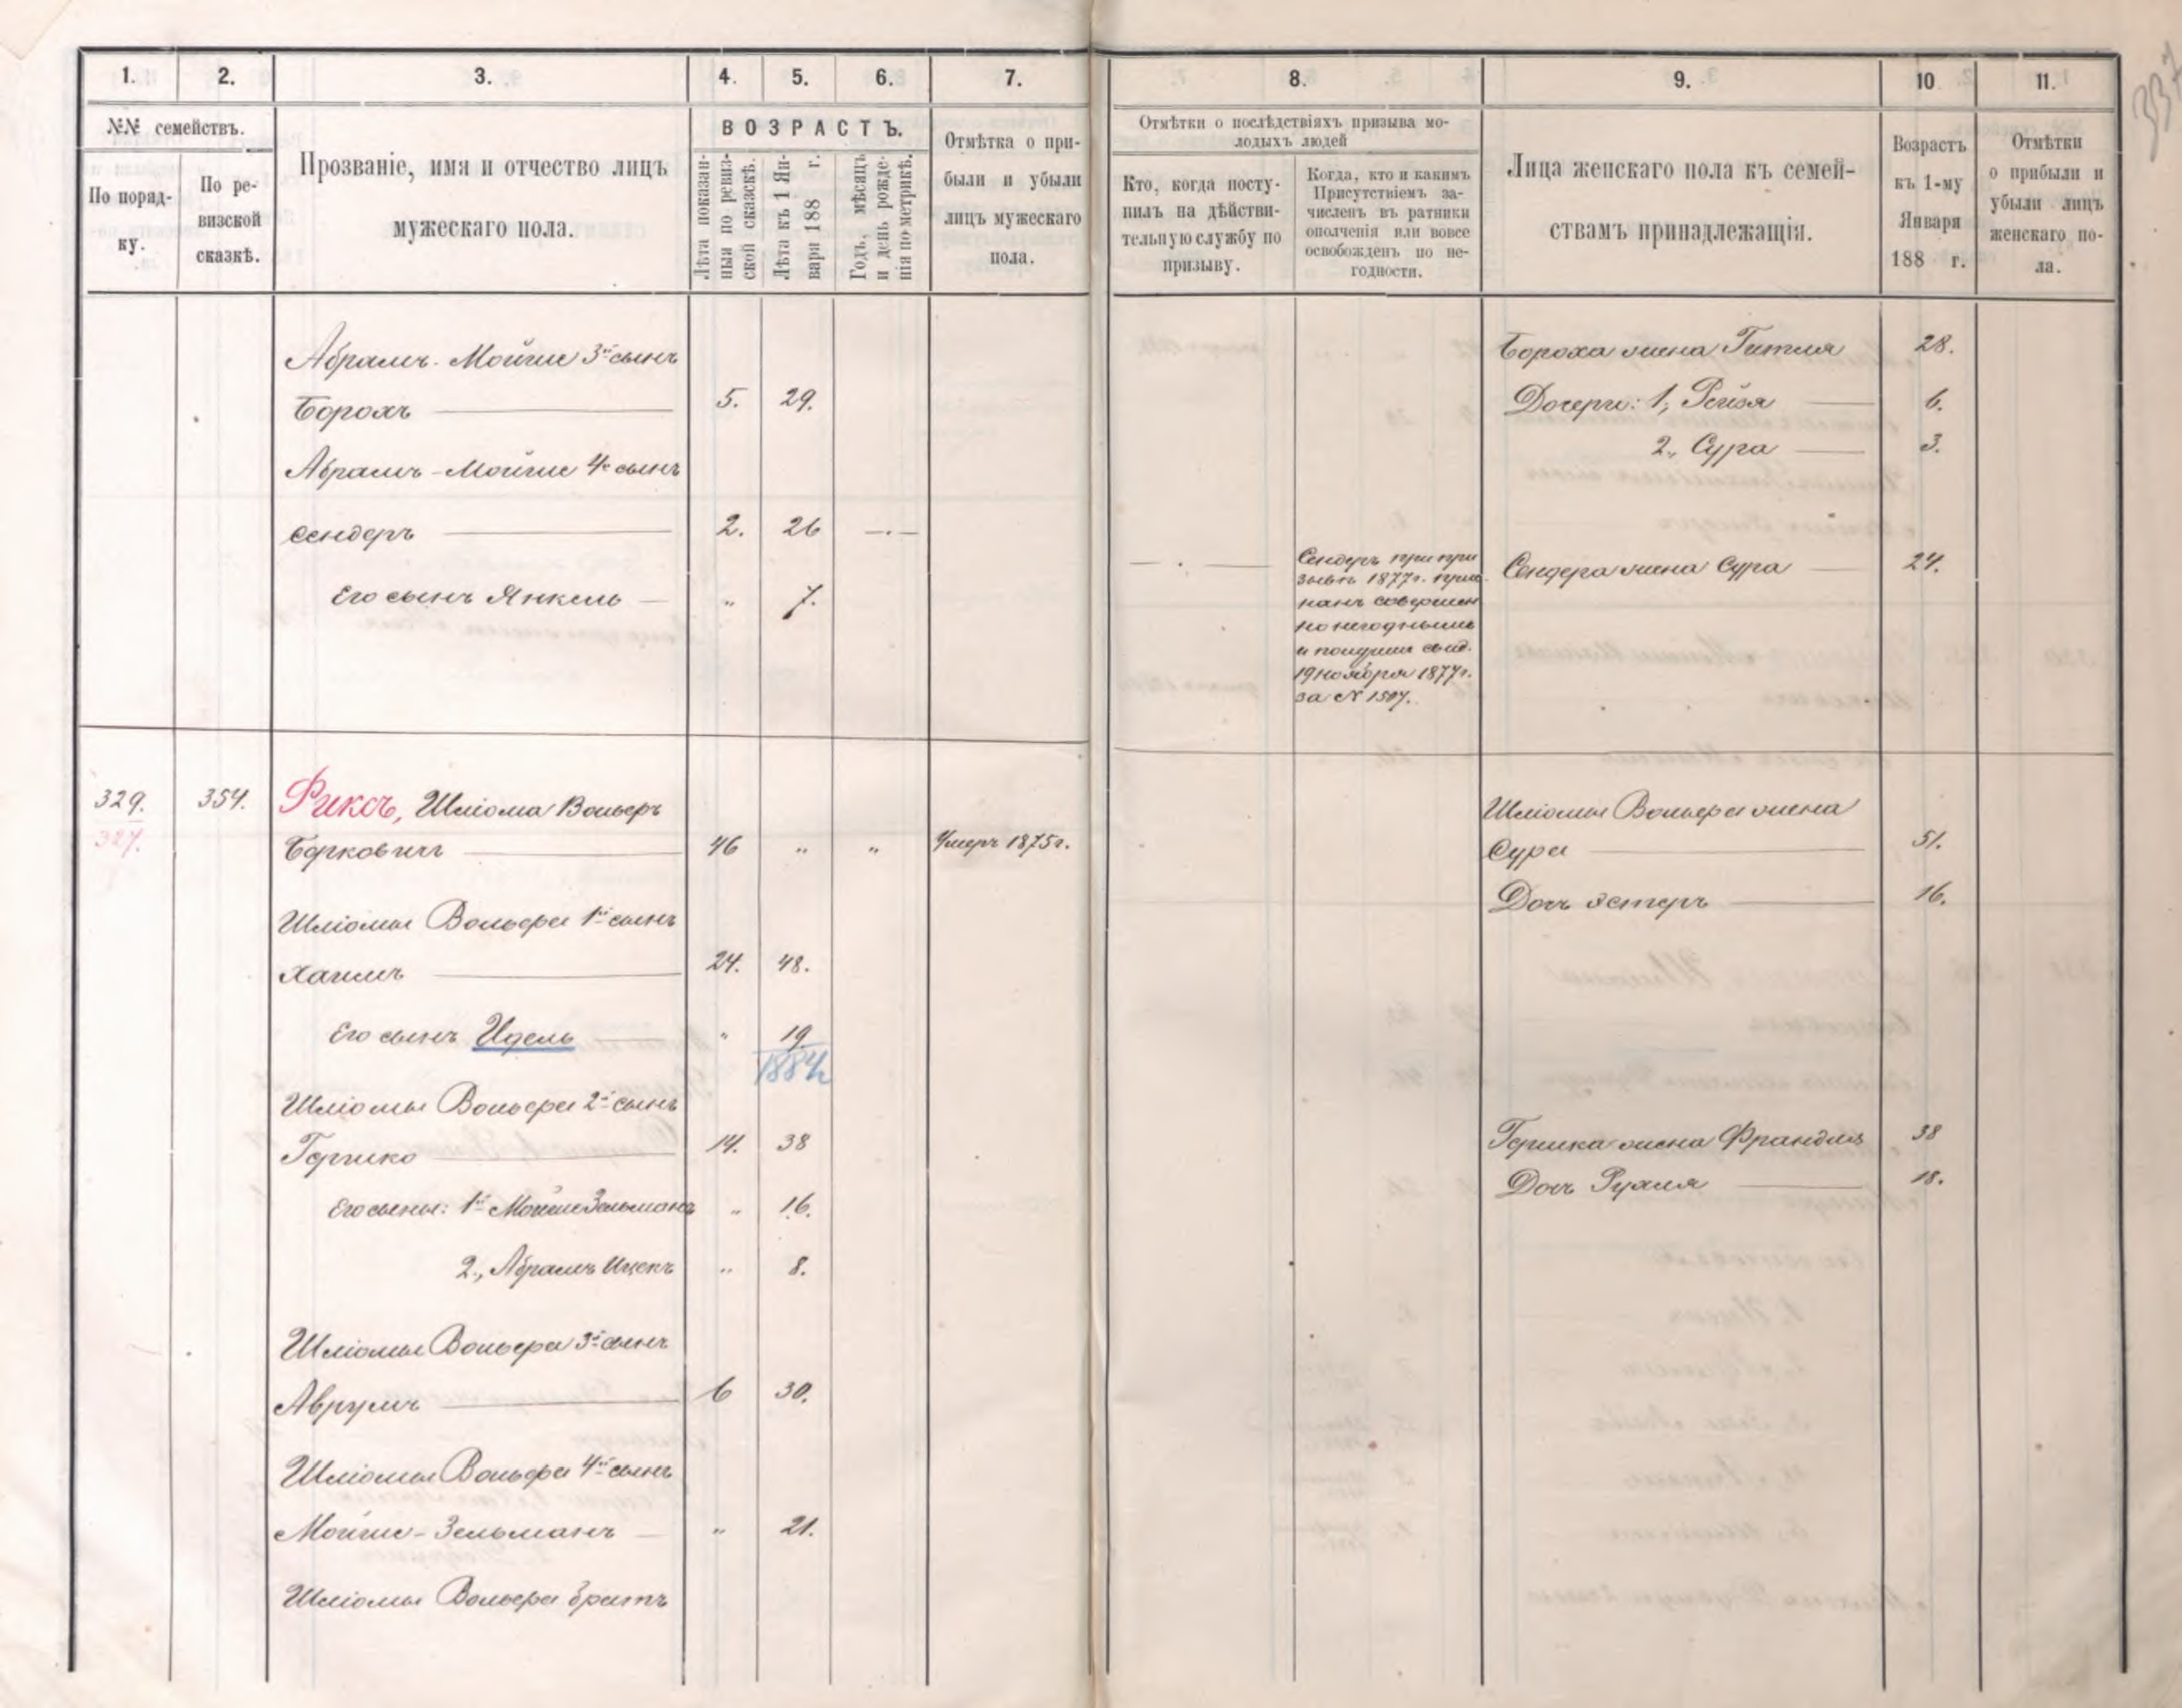 337
1. 2. 3. 4. 5. 6. 7.
№№ семействъ.
По поряд-
ку.
По ре-
визской
сказкѣ.
Прозваніе, имя и отчество лицъ
мужескаго пола.
ВОЗРАСТЪ.
Лѣта показан-
ныя по ревиз-
ской сказкѣ.
Лѣта къ 1 Ян-
варя 188 г.
Годъ, мѣсяцъ
и день рожде-
нія по метрикѣ.
Отмѣтка о при-
были и убыли
лицъ мужескаго
пола.
Абрамъ-Мойше 3й сынъ
Борохъ 5. 29.
Абрамъ-Мойше 4й сынъ
Сендеръ 2. 26 —.—
Его сынъ Янкель „ 7.
329. 354. Риксъ, Шліома Вольфъ
327.
Берковичъ 46 „ „ Умеръ 1875 г.
Шліомы Вольфа 1й сынъ
Хаимъ 24. 48.
Его сынъ Идель „ 19
1884
Шліомы Вольфа 2й сынъ
Гершко 14. 38
Его сыны: 1й Мойше Зельманъ „ 16.
2., Абрамъ Ицекъ „ 8.
Шліомы Вольфа 3й сынъ
Аврумъ 6 30.
Шліомы Вольфа 4й сынъ
Мойше-Зельманъ „ 21.
Шліомы Вольфа братъ
8. 9. 10 11.
Отмѣтки о послѣдствіяхъ призыва мо-
лодыхъ людей
Кто, когда посту-
пилъ на дѣйстви-
тельную службу по
призыву.
Когда, кто и какимъ
Присутствіемъ за-
численъ въ ратники
ополченія или вовсе
освобожденъ по не-
годности.
Лица женскаго пола къ семей-
ствамъ принадлежащія.
Возрастъ
къ 1-му
Января
188 г.
Отмѣтки
о прибыли и
убыли лицъ
женскаго по-
ла.
Бороха жена Гитля 28.
Дочери: 1, Рейзя 6.
2., Сура 3.
Сендеръ при при
зывѣ 1877 г. приз
нанъ совершен
но негоднымъ
и получилъ свид.
19 ноября 1877 г.
за № 1507.
Сендера жена Сура 24.
Шліомы Вольфа жена
Сура 51.
Дочь Эстеръ 16.
Гершка жена Франдля 38
Дочь Рухля 18.